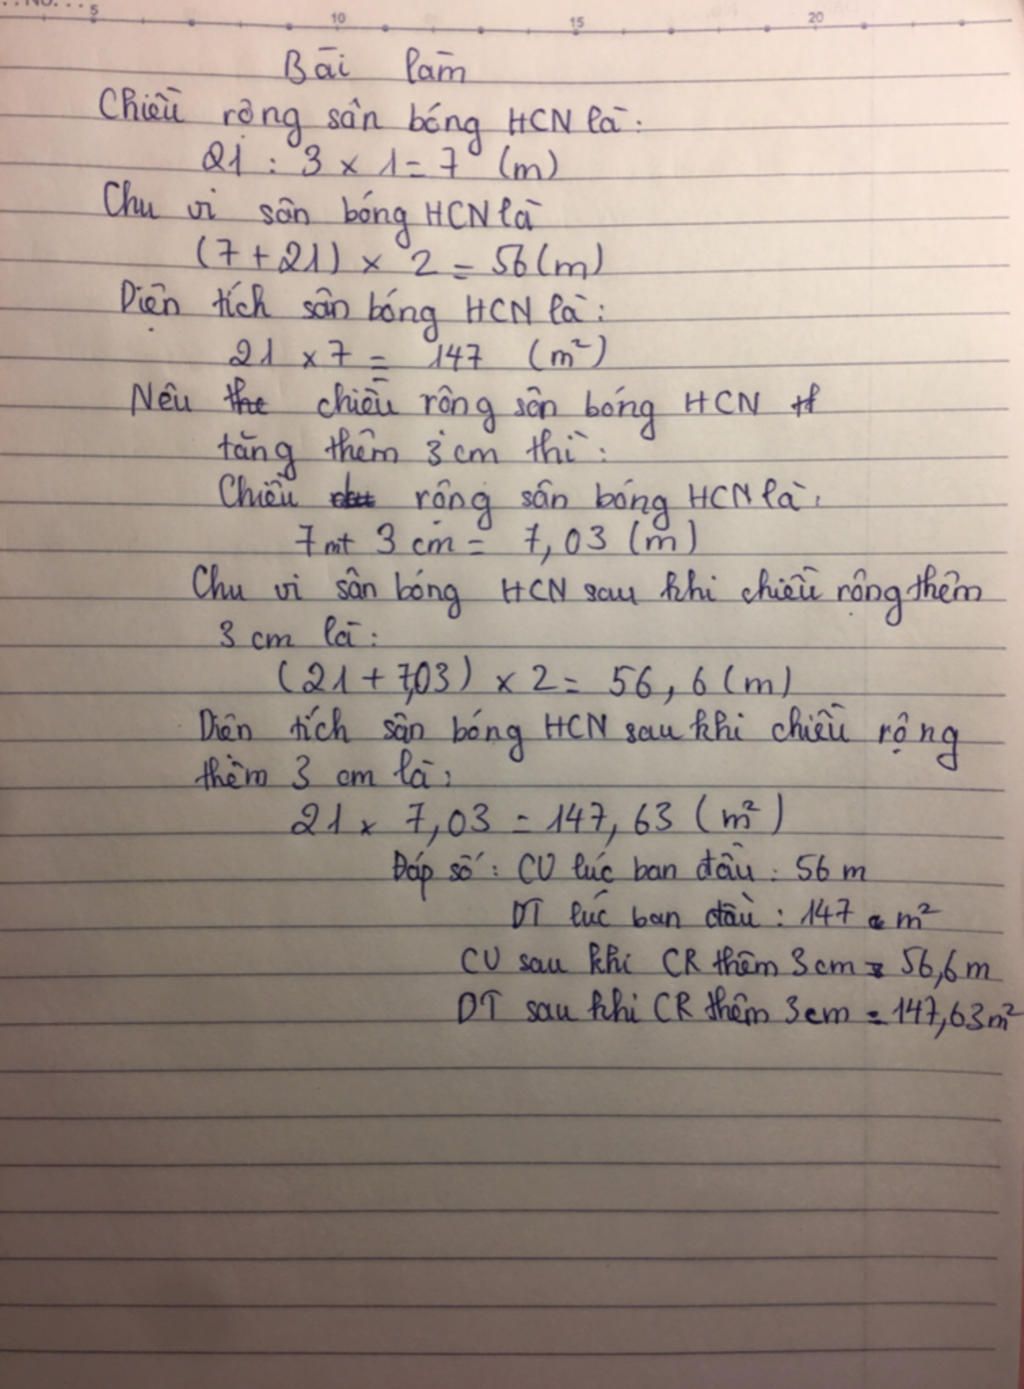 5 10 15 20
Bài làm
Chiều rộng sân bóng HCN là:
21 : 3 x 1 = 7 (m)
Chu vi sân bóng HCN là
(7 + 21) x 2 = 56 (m)
Diện tích sân bóng HCN là:
21 x 7 = 147 (m²)
Nếu chiều rộng sân bóng HCN
tăng thêm 3 cm thì:
Chiều rộng sân bóng HCN là:
7m + 3 cm = 7,03 (m)
Chu vi sân bóng HCN sau khi chiều rộng thêm
3 cm là:
(21 + 7,03) x 2 = 56,6 (m)
Diện tích sân bóng HCN sau khi chiều rộng
thêm 3 cm là:
21 x 7,03 = 147,63 (m²)
Đáp số: CV lúc ban đầu: 56 m
DT lúc ban đầu: 147 m²
CV sau khi CR thêm 3cm = 56,6m
DT sau khi CR thêm 3cm = 147,63m²